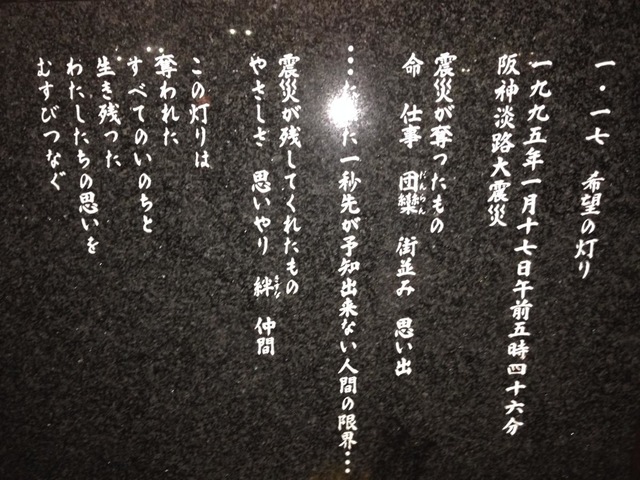 一・一七　希望の灯り
一九九五年一月十七日午前五時四十六分
阪神淡路大震災
震災が奪ったもの
だんらん
命　仕事　団欒　街並み　思い出
…たった一秒先が予知出来ない人間の限界…
震災が残してくれたもの
きずな
やさしさ　思いやり　絆　仲間
この灯りは
奪われた
すべてのいのちと
生き残った
わたしたちの思いを
むすびつなぐ